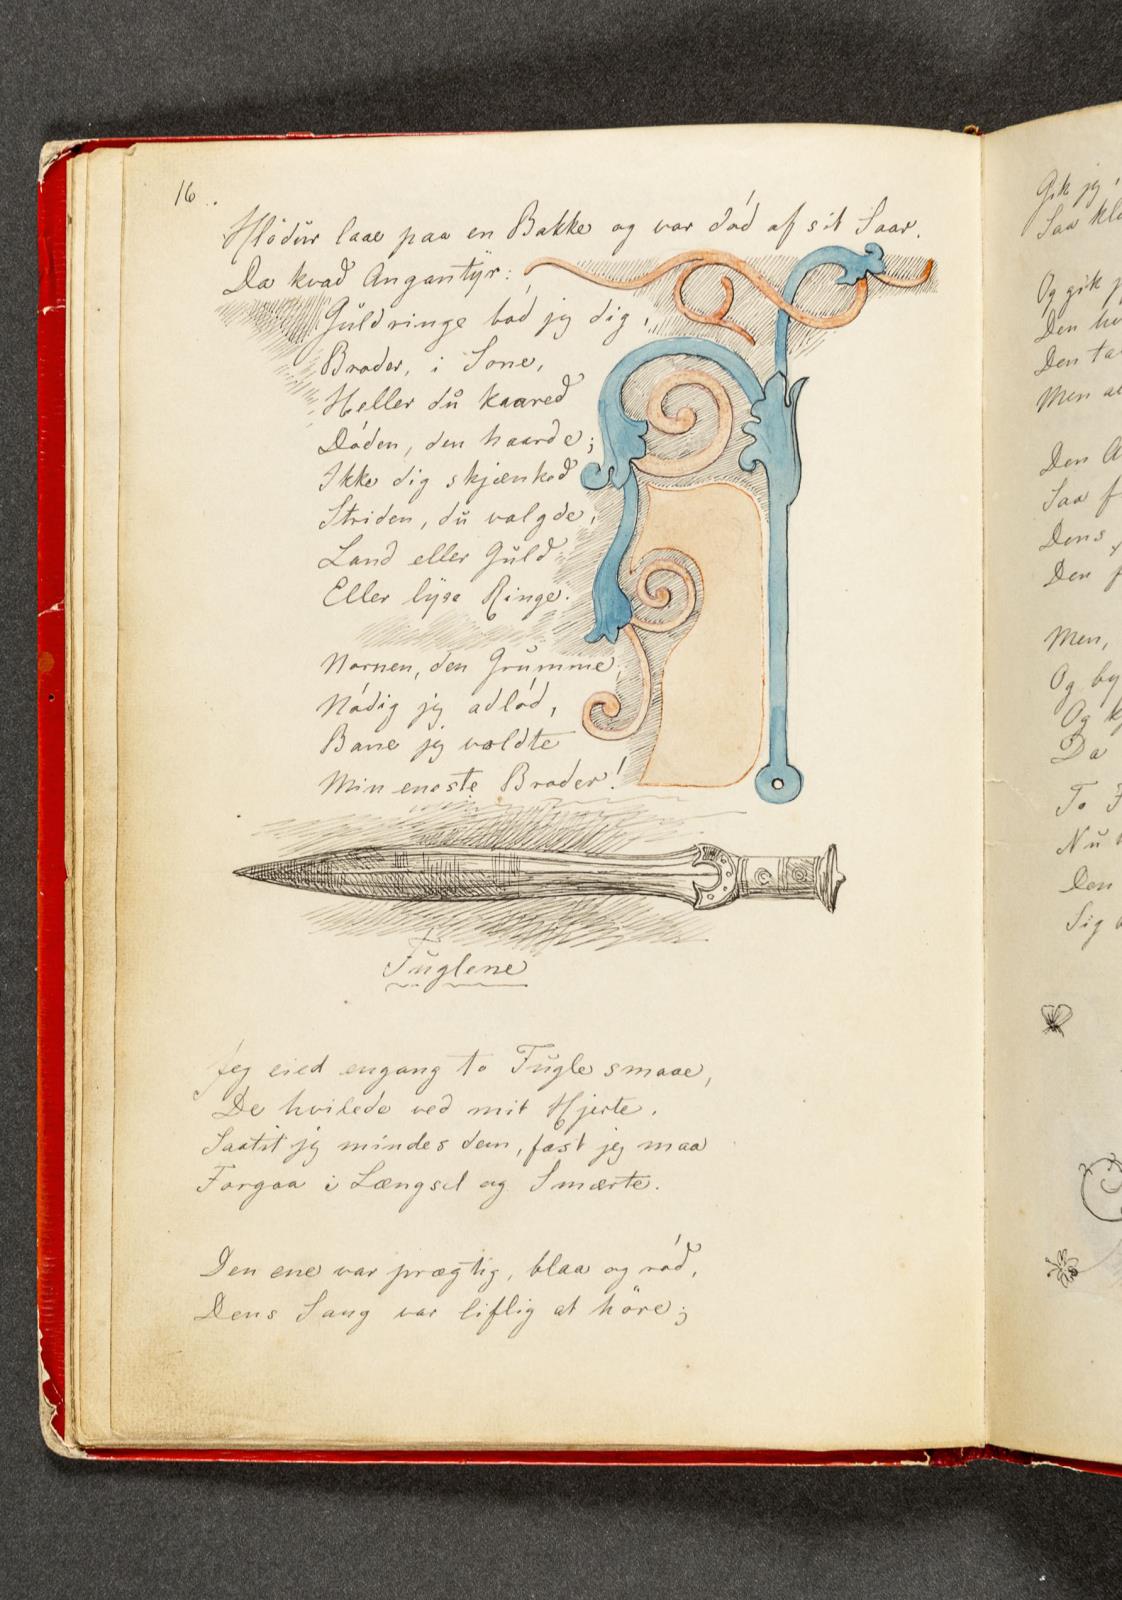 16.
Hlödŭr laae paa en Bakke og var död af sit Saar.
Da kvad Angantyr:
Gŭldringe böd jeg dig,
Broder, i Sone,
Heller dŭ kaared
Döden, den haarde;
Ikke dig skjænked
Striden, dŭ valgde,
Land eller Gŭld
Eller lyse Ringe.
Nornen, den Grŭmme
Nödig jeg adlöd,
Bane jeg voldte
Min eneste Broder!
Fŭglene
Jeg eied engang to Fŭgle smaae,
De hvilede ved mit Hjerte.
Saatit jeg mindes dem, fast jeg maa
Forgaa i Længsel og Smærte.
Den ene var prægtig, blaa og röd,
Dens Sang var liflig at höre;
Gik jeg
Saa
Og gik
Den
Den
Men
Den
Saa
Dens
Den
Men,
Og
Og
Da
To
Nŭ
Den
Sig